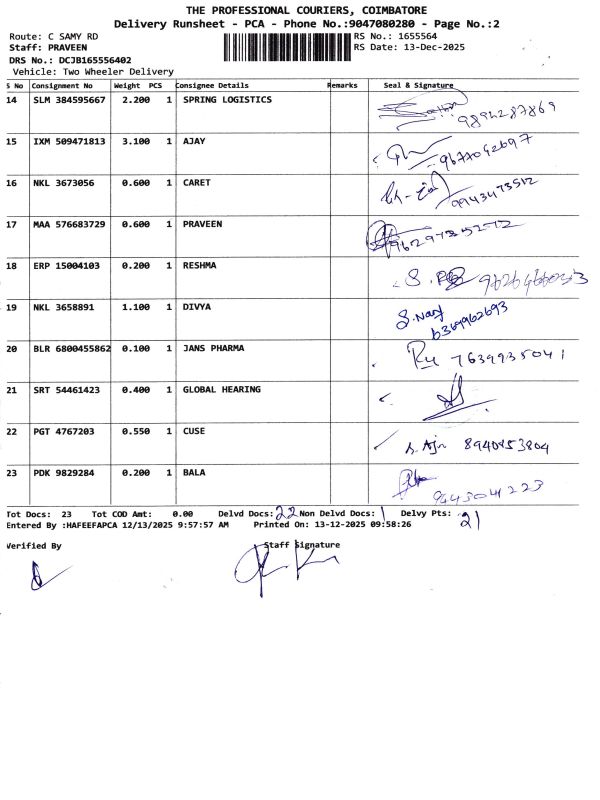 THE PROFESSIONAL COURIERS, COIMBATORE
Delivery Runsheet - PCA - Phone No.:9047080280 - Page No.:2
Route: C SAMY RD RS No.: 1655564
Staff: PRAVEEN RS Date: 13-Dec-2025
DRS No.: DCJB165556402
Vehicle: Two Wheeler Delivery
S No Consignment No Weight PCS Consignee Details Remarks Seal & Signature
14 SLM 384595667 2.200 1 SPRING LOGISTICS 9894287869
15 IXM 509471813 3.100 1 AJAY 9677042697
16 NKL 3673056 0.600 1 CARET 9943473512
17 MAA 576683729 0.600 1 PRAVEEN
18 ERP 15004103 0.200 1 RESHMA
19 NKL 3658891 1.100 1 DIVYA
6369962693
20 BLR 6800455862 0.100 1 JANS PHARMA 7639935041
21 SRT 54461423 0.400 1 GLOBAL HEARING
22 PGT 4767203 0.550 1 CUSE 8940853804
23 PDK 9829284 0.200 1 BALA
9445041223
Tot Docs: 23 Tot COD Amt: 0.00 Delvd Docs: 22 Non Delvd Docs: 1 Delvy Pts: 21
Entered By :HAFEEFAPCA 12/13/2025 9:57:57 AM Printed On: 13-12-2025 09:58:26
Verified By Staff Signature